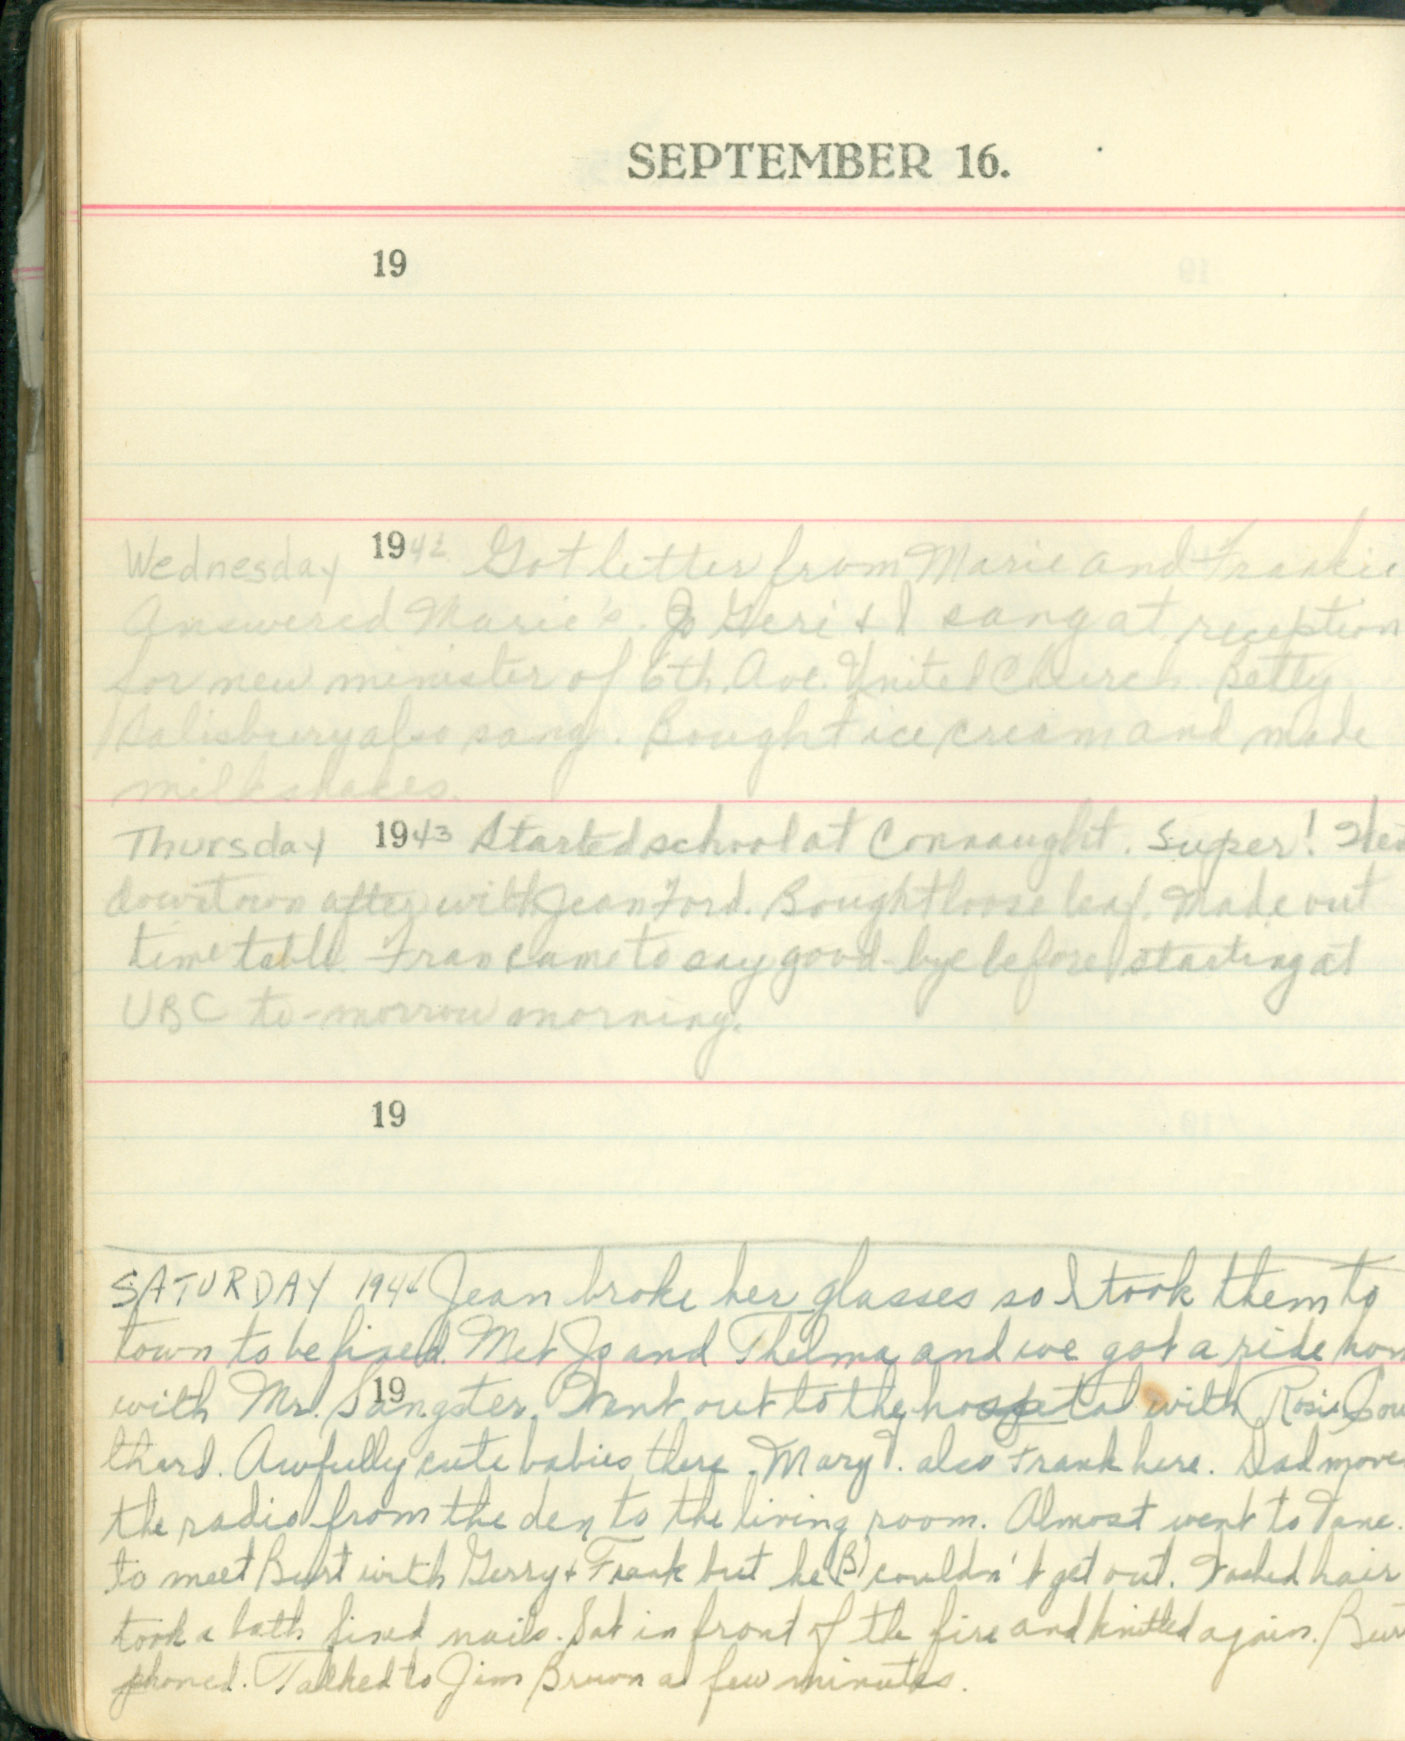 SEPTEMBER 16.
19
Wednesday 1942 Got letter from Marie and Frankie
Answered Marie's. Jo Geri & I sang at reception
for new minister of 6th Ave. United Church. Betty
Salisbury also sang. Bought ice cream and made
milkshakes.
Thursday 1943 Started school at Connaught. Super!
downtown after with Jean Ford. Bought loose leaf. Made out
time table. Fran came to say good-bye before starting at
UBC to-morrow morning.
19
SATURDAY 1944 Jean broke her glasses so I took them to
town to be fixed. Met Jo and Thelma and we got a ride hom
19
with Mr. Sangster. Went out to the hospital with Rosie Sou
thard. Awfully cute babies there. Mary T. also Frank here. Dad move
the radio from the den to the living room. Almost went to Vanc.
to meet Burt with Gerry & Frank but he (B) couldn't get out. Washed hair
took a bath fixed nails. Sat in front of the fire and knitted again. Bur
phoned. Talked to Jim Brown a few minutes.